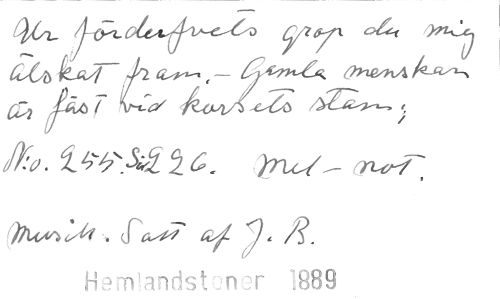 Ur förderfvets grop du mig
älskat fram. – Gamla menskan
är fäst vid korsets stam;
No. 255. Sid 226. Mel – not.
Musik. Satt af J. B.
Hemlandstoner 1889